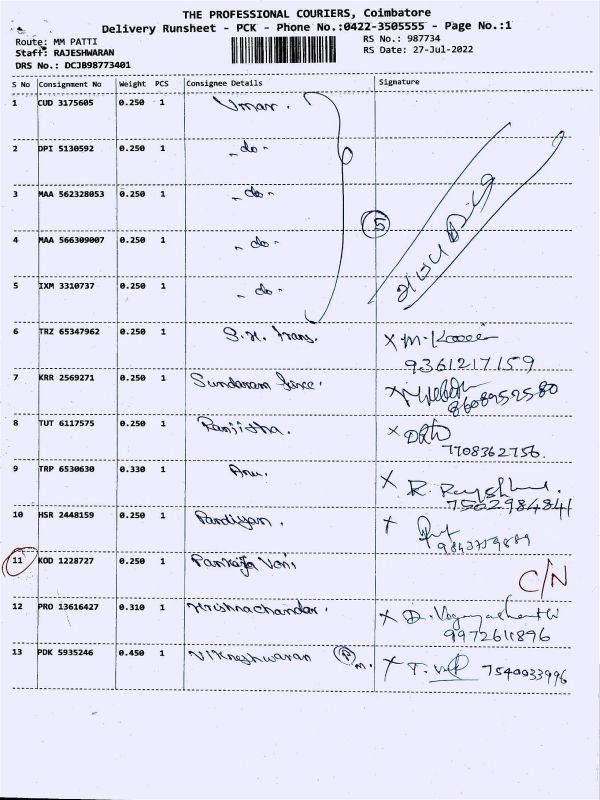 THE PROFESSIONAL COURIERS, Coimbatore
Delivery Runsheet - PCK - Phone No.:0422-3505555 - Page No.:1
Route: MM PATTI RS No.: 987734
Staff: RAJESHWARAN RS Date: 27-Jul-2022
DRS No.: DCJB98773401
S No Consignment No Weight PCS Consignee Details Signature
1 CUD 3175605 0.250 1 Umar.
2 DPI 5130592 0.250 1 -do-
3 MAA 562328053 0.250 1 -do-
4 MAA 566309007 0.250 1 -do-
5
5 IXM 3310737 0.250 1 -do-
6 TRZ 65347962 0.250 1 S.H. Trans. X M.
9361217159
7 KRR 2569271 0.250 1 Sundaram
8608952580
8 TUT 6117575 0.250 1 Ranjitha. X
7708362756.
9 TRP 6530630 0.330 1 Anu. X R.
7502984841
10 HSR 2448159 0.250 1 Pandiyan. X
11 KOD 1228727 0.250 1 Vani
C/N
12 PRO 13616427 0.310 1 Krishnachandar. X D.
9972611896
13 PDK 5935246 0.450 1 Vikneshwaran P M. X T. 7540033996